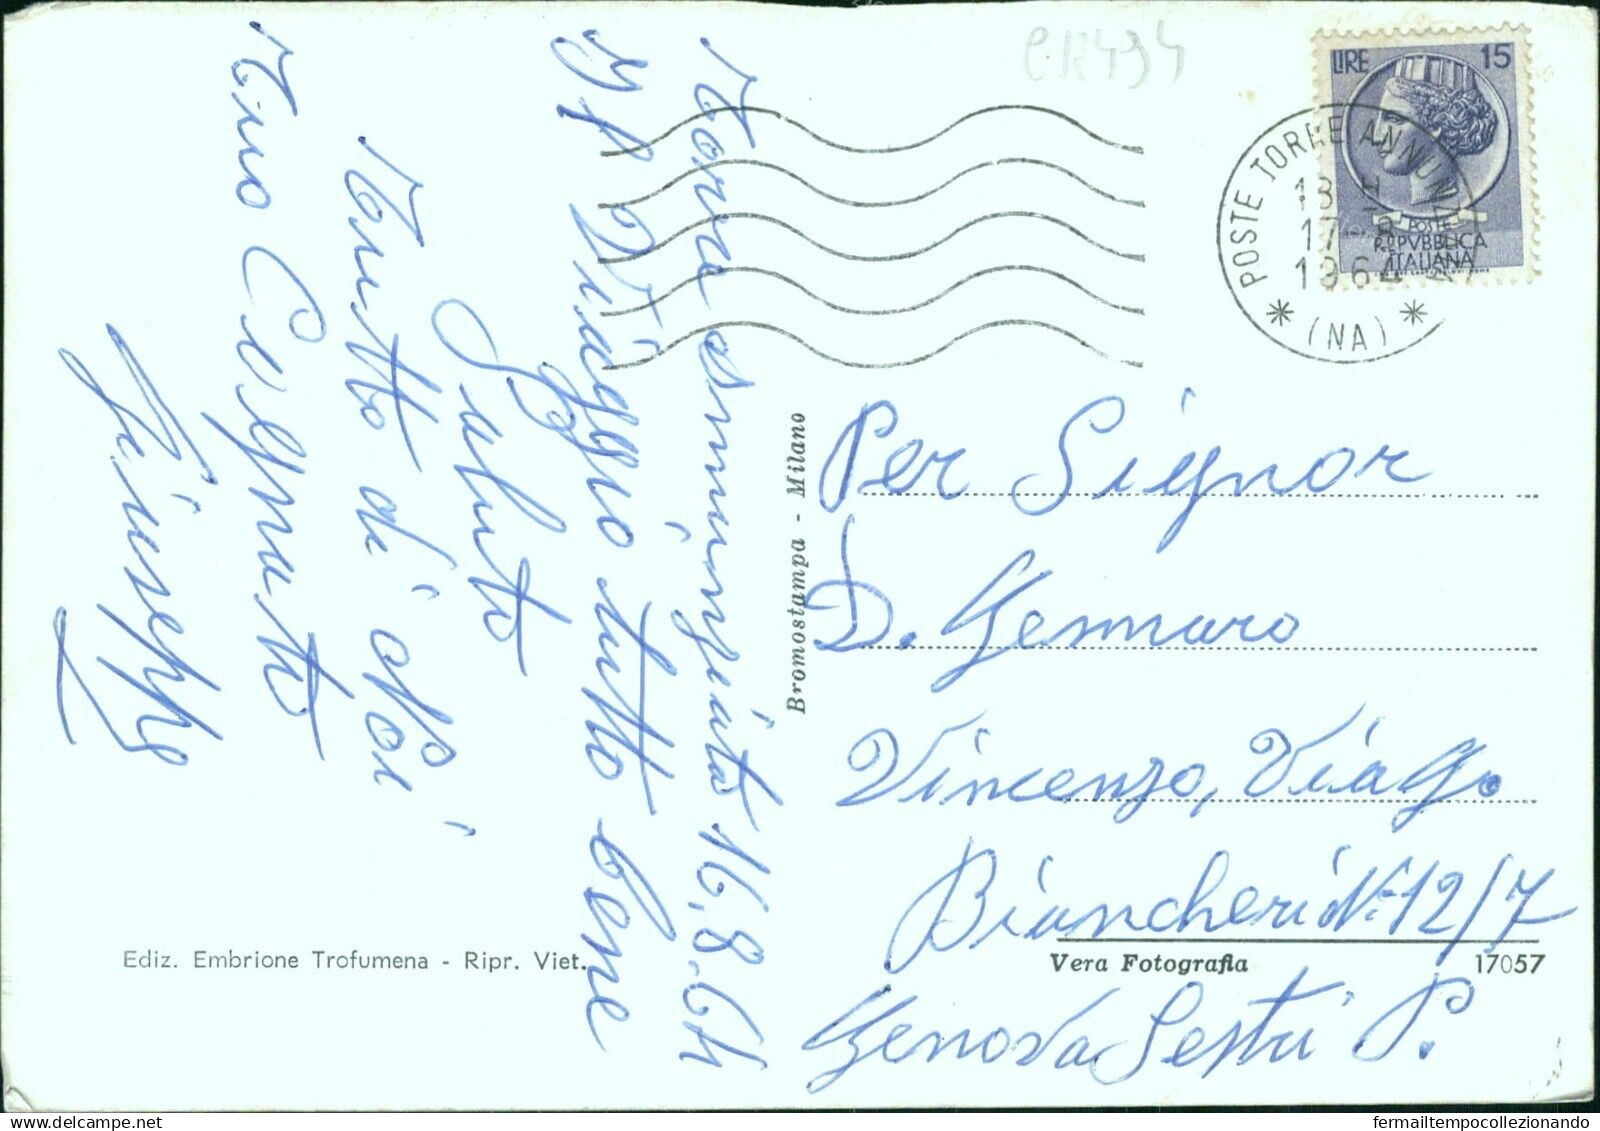 Torre annunziata 16.8.64
Il Viaggio tutto bene
Saluto
Tutto di Noi
Tuo Cognato
Giuseppe
Ediz. Embrione Trofumena - Ripr. Viet.
Bromostampa - Milano
CK494
LIRE 15
POSTE
REPVBBLICA
ITALIANA
POSTE TORRE ANNUNZIATA
18 H
17 8
1964
* (NA) *
Per Signor
D. Gennaro
Vincenzo, Via G.
Biancheri N: 12/7
Vera Fotografia 17057
Genova Sestri P.
fermailtempocollezionando.com